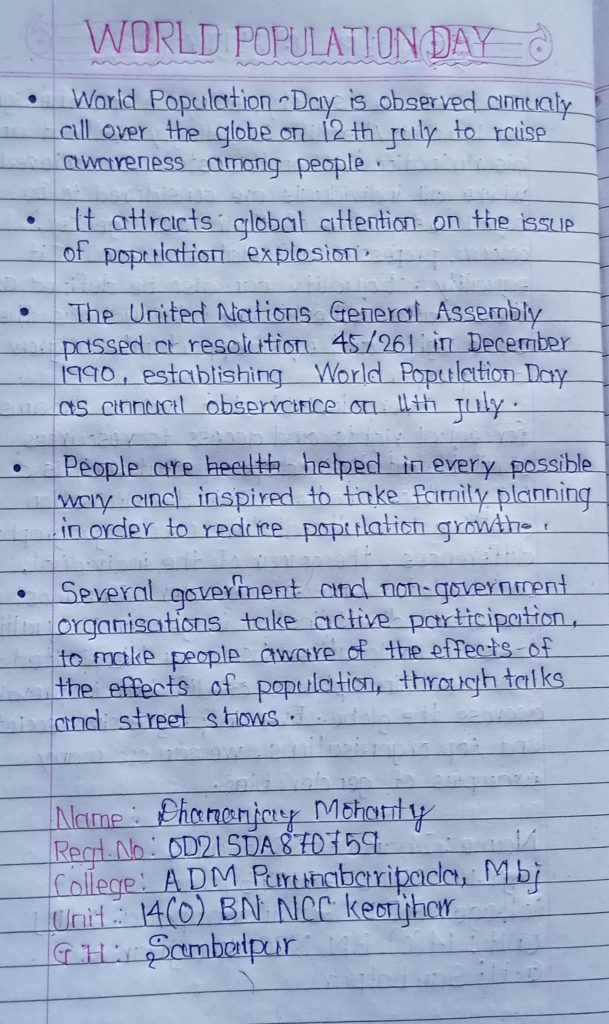 WORLD POPULATION DAY
• World Population-Day is observed annualy
all over the globe on 12th july to raise
awareness among people.
• It attracts global attention on the issue
of population explosion.
• The United Nations General Assembly
passed a resolution 45/261 in December
1990, establishing World Population Day
as annual observance on 11th july.
• People are health helped in every possible
way and inspired to take family planning
in order to reduce population growth.
• Several goverment and non-government
organisations take active participation,
to make people aware of the effects of
the effects of population, through talks
and street shows.
Name: Dhananjay Mohanty
Regt.No: OD21SDA870759
College: ADM Purunabaripada, Mbj
Unit: 14(O) BN NCC Keonjhar
GH: Sambalpur